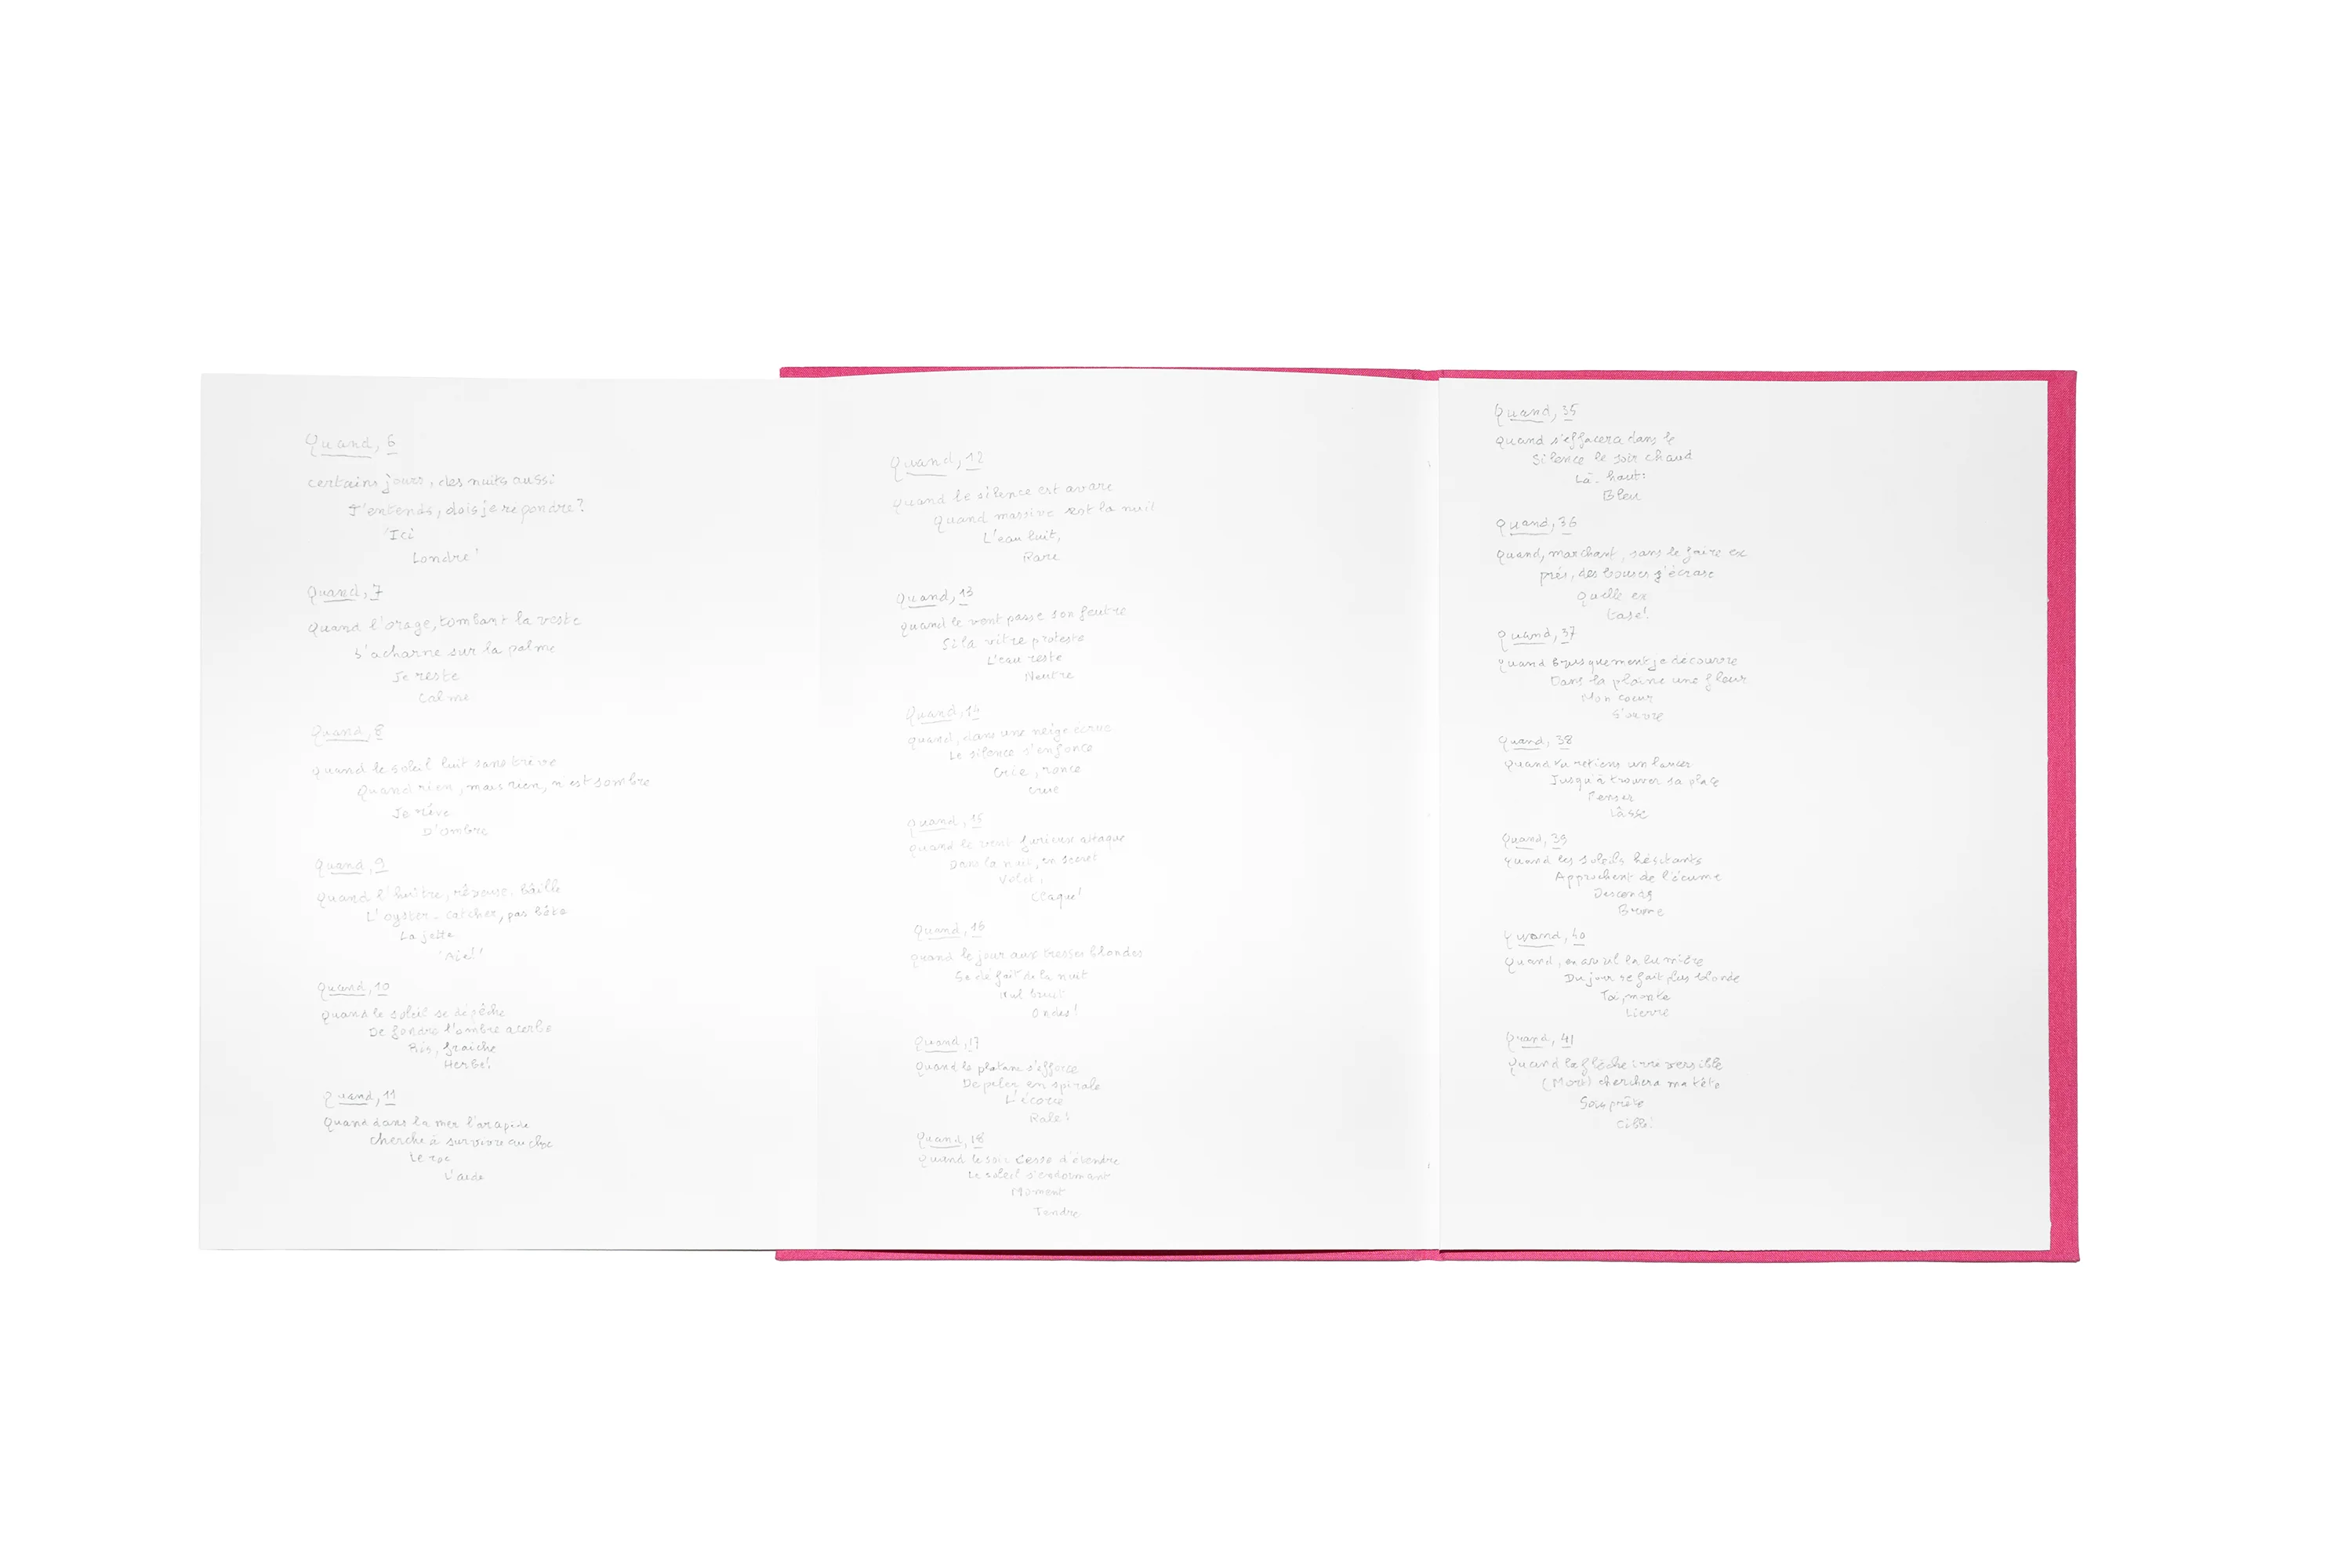 Quand, 6
certains jours, des nuits aussi
J'entends, dois je repondre?
'Ici
Londre'
Quand, 7
Quand l'orage, tombant la veste
S'acharne sur la palme
Je reste
Calme
Quand, 8
Quand le soleil luit sans trève
Quand rien, mais rien, n'est sombre
Je rêve
D'ombre
Quand, 9
Quand l'huître, rêveuse, bâille
L'oyster-catcher, pas bête
La jette
'Aïe!'
Quand, 10
Quand le soleil se dépêche
De fondre l'ombre acerbe
fraiche
Herbe!
Quand, 11
Quand dans la mer l'arapède
Cherche à survivre au choc
Le roc
L'aide
Quand, 12
Quand le silence est avare
Quand massive est la nuit
L'eau luit,
Rare
Quand, 13
Quand le vent passe son feutre
Si la vitre proteste
L'eau reste
Neutre
Quand, 14
Quand, dans une neige écrue
Le silence s'enfonce
Crie, ronce
Crue
Quand, 15
Quand le vent furieux attaque
Dans la nuit, en secret
Volet,
Claque!
Quand, 16
Quand le jour aux tresses blondes
Se défait de la nuit
Nul bruit
Ondes!
Quand, 17
Quand le platane s'efforce
De peler en spirale
L'écorce
Rale!
Quand, 18
Quand le soir cesse d'étendre
Le soleil s'endormant
Moment
Tendre
Quand, 35
Quand s'effacera dans le
Silence le soir chaud
Là-haut:
Bleu
Quand, 36
Quand, marchant, sans le faire ex
près, des bouses j'écrase
Quelle ex
tase!
Quand, 37
Quand brusquement je découvre
Dans la plaine une fleur
Mon coeur
S'ouvre
Quand, 38
Quand tu retiens un lancer
Jusqu'à trouver sa place
Penser
Lâsse
Quand, 39
Quand les soleils hésitants
Approchent de l'écume
Descends
Brume
Quand, 40
Quand, en avril la lumière
Du jour se fait plus blonde
Toi, monte
Lierre
Quand, 41
Quand la flèche irréversible
(Mort) cherchera ma tête
Sois prête
Cible!